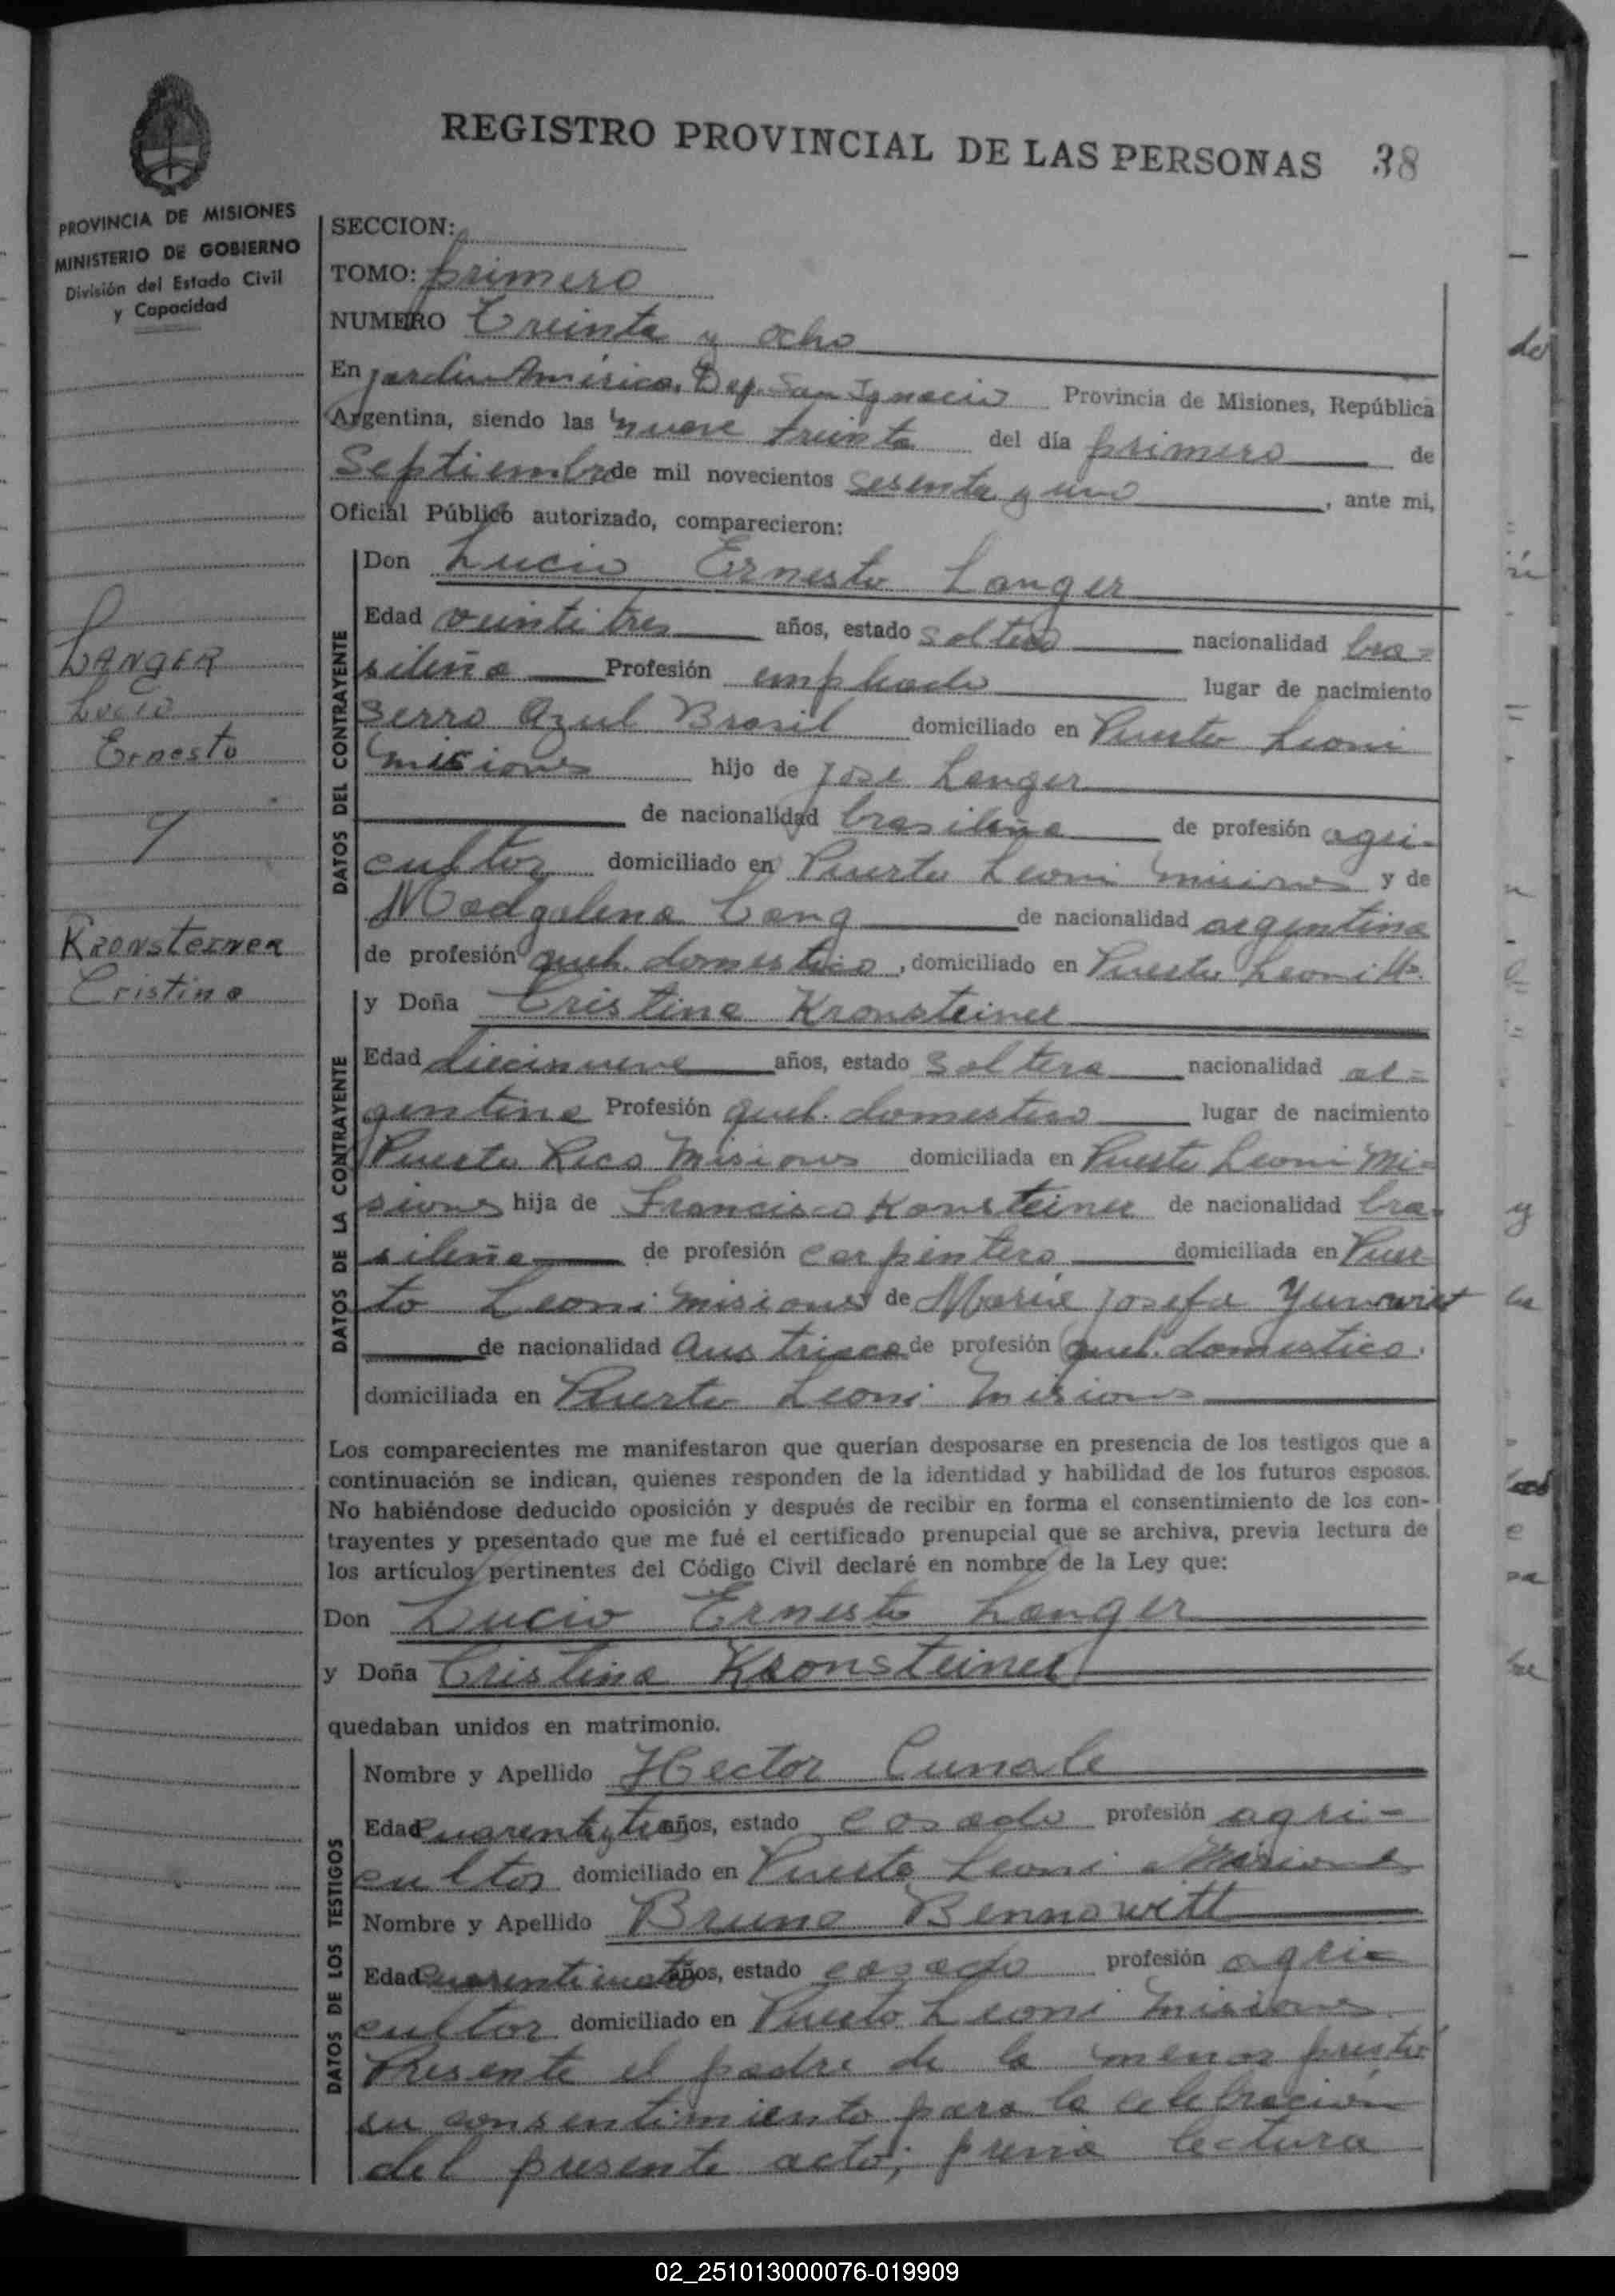 REGISTRO PROVINCIAL DE LAS PERSONAS 38
PROVINCIA DE MISIONES
MINISTERIO DE GOBIERNO
División del Estado Civil
y Capacidad
LANGER
Lucio
Ernesto
y
Kronsteiner
Cristina
SECCION:
TOMO: primero
NUMERO Treinta y ocho
En Jardin América, Dep. San Ignacio Provincia de Misiones, República
Argentina, siendo las nueve treinta del día primero de
Septiembre de mil novecientos sesenta y uno, ante mi,
Oficial Público autorizado, comparecieron:
DATOS DEL CONTRAYENTE
Don Lucio Ernesto Langer
Edad veintitres años, estado soltero nacionalidad bra=
sileña Profesión empleado lugar de nacimiento
Serro Azul Brasil domiciliado en Puerto Leoni
misiones hijo de Jose Langer
de nacionalidad brasileña de profesión agri-
cultor domiciliado en Puerto Leoni misiones y de
Madgalena Lang de nacionalidad argentina
de profesión queh. domestico, domiciliado en Puerto Leoni
DATOS DE LA CONTRAYENTE
y Doña Cristina Kronsteiner
Edad diecinueve años, estado soltera nacionalidad ar=
gentina Profesión queh. domestico lugar de nacimiento
Puerto Rico Misiones domiciliada en Puerto Leoni Mi=
siones hija de Francisco Konsteiner de nacionalidad bra=
sileña de profesión carpintero domiciliada en Puer
to Leoni misiones de Maria Josefa
de nacionalidad Austriaca de profesión queh. domestico.
domiciliada en Puerto Leoni Misiones
Los comparecientes me manifestaron que querían desposarse en presencia de los testigos que a
continuación se indican, quienes responden de la identidad y habilidad de los futuros esposos.
No habiéndose deducido oposición y después de recibir en forma el consentimiento de los con-
trayentes y presentado que me fué el certificado prenupcial que se archiva, previa lectura de
los artículos pertinentes del Código Civil declaré en nombre de la Ley que:
Don Lucio Ernesto Langer
y Doña Cristina Kronsteiner
quedaban unidos en matrimonio.
DATOS DE LOS TESTIGOS
Nombre y Apellido Hector Cunale
Edad cuarenta y tres años, estado casado profesión agri-
cultor domiciliado en Puerto Leoni Misiones
Nombre y Apellido Bruno Bennowitt
Edad años, estado casado profesión agri=
cultor domiciliado en Puerto Leoni Misiones
Presente el padre de la menor presto
su consentimiento para la celebración
del presente acto; previa lectura
02_251013000076-019909